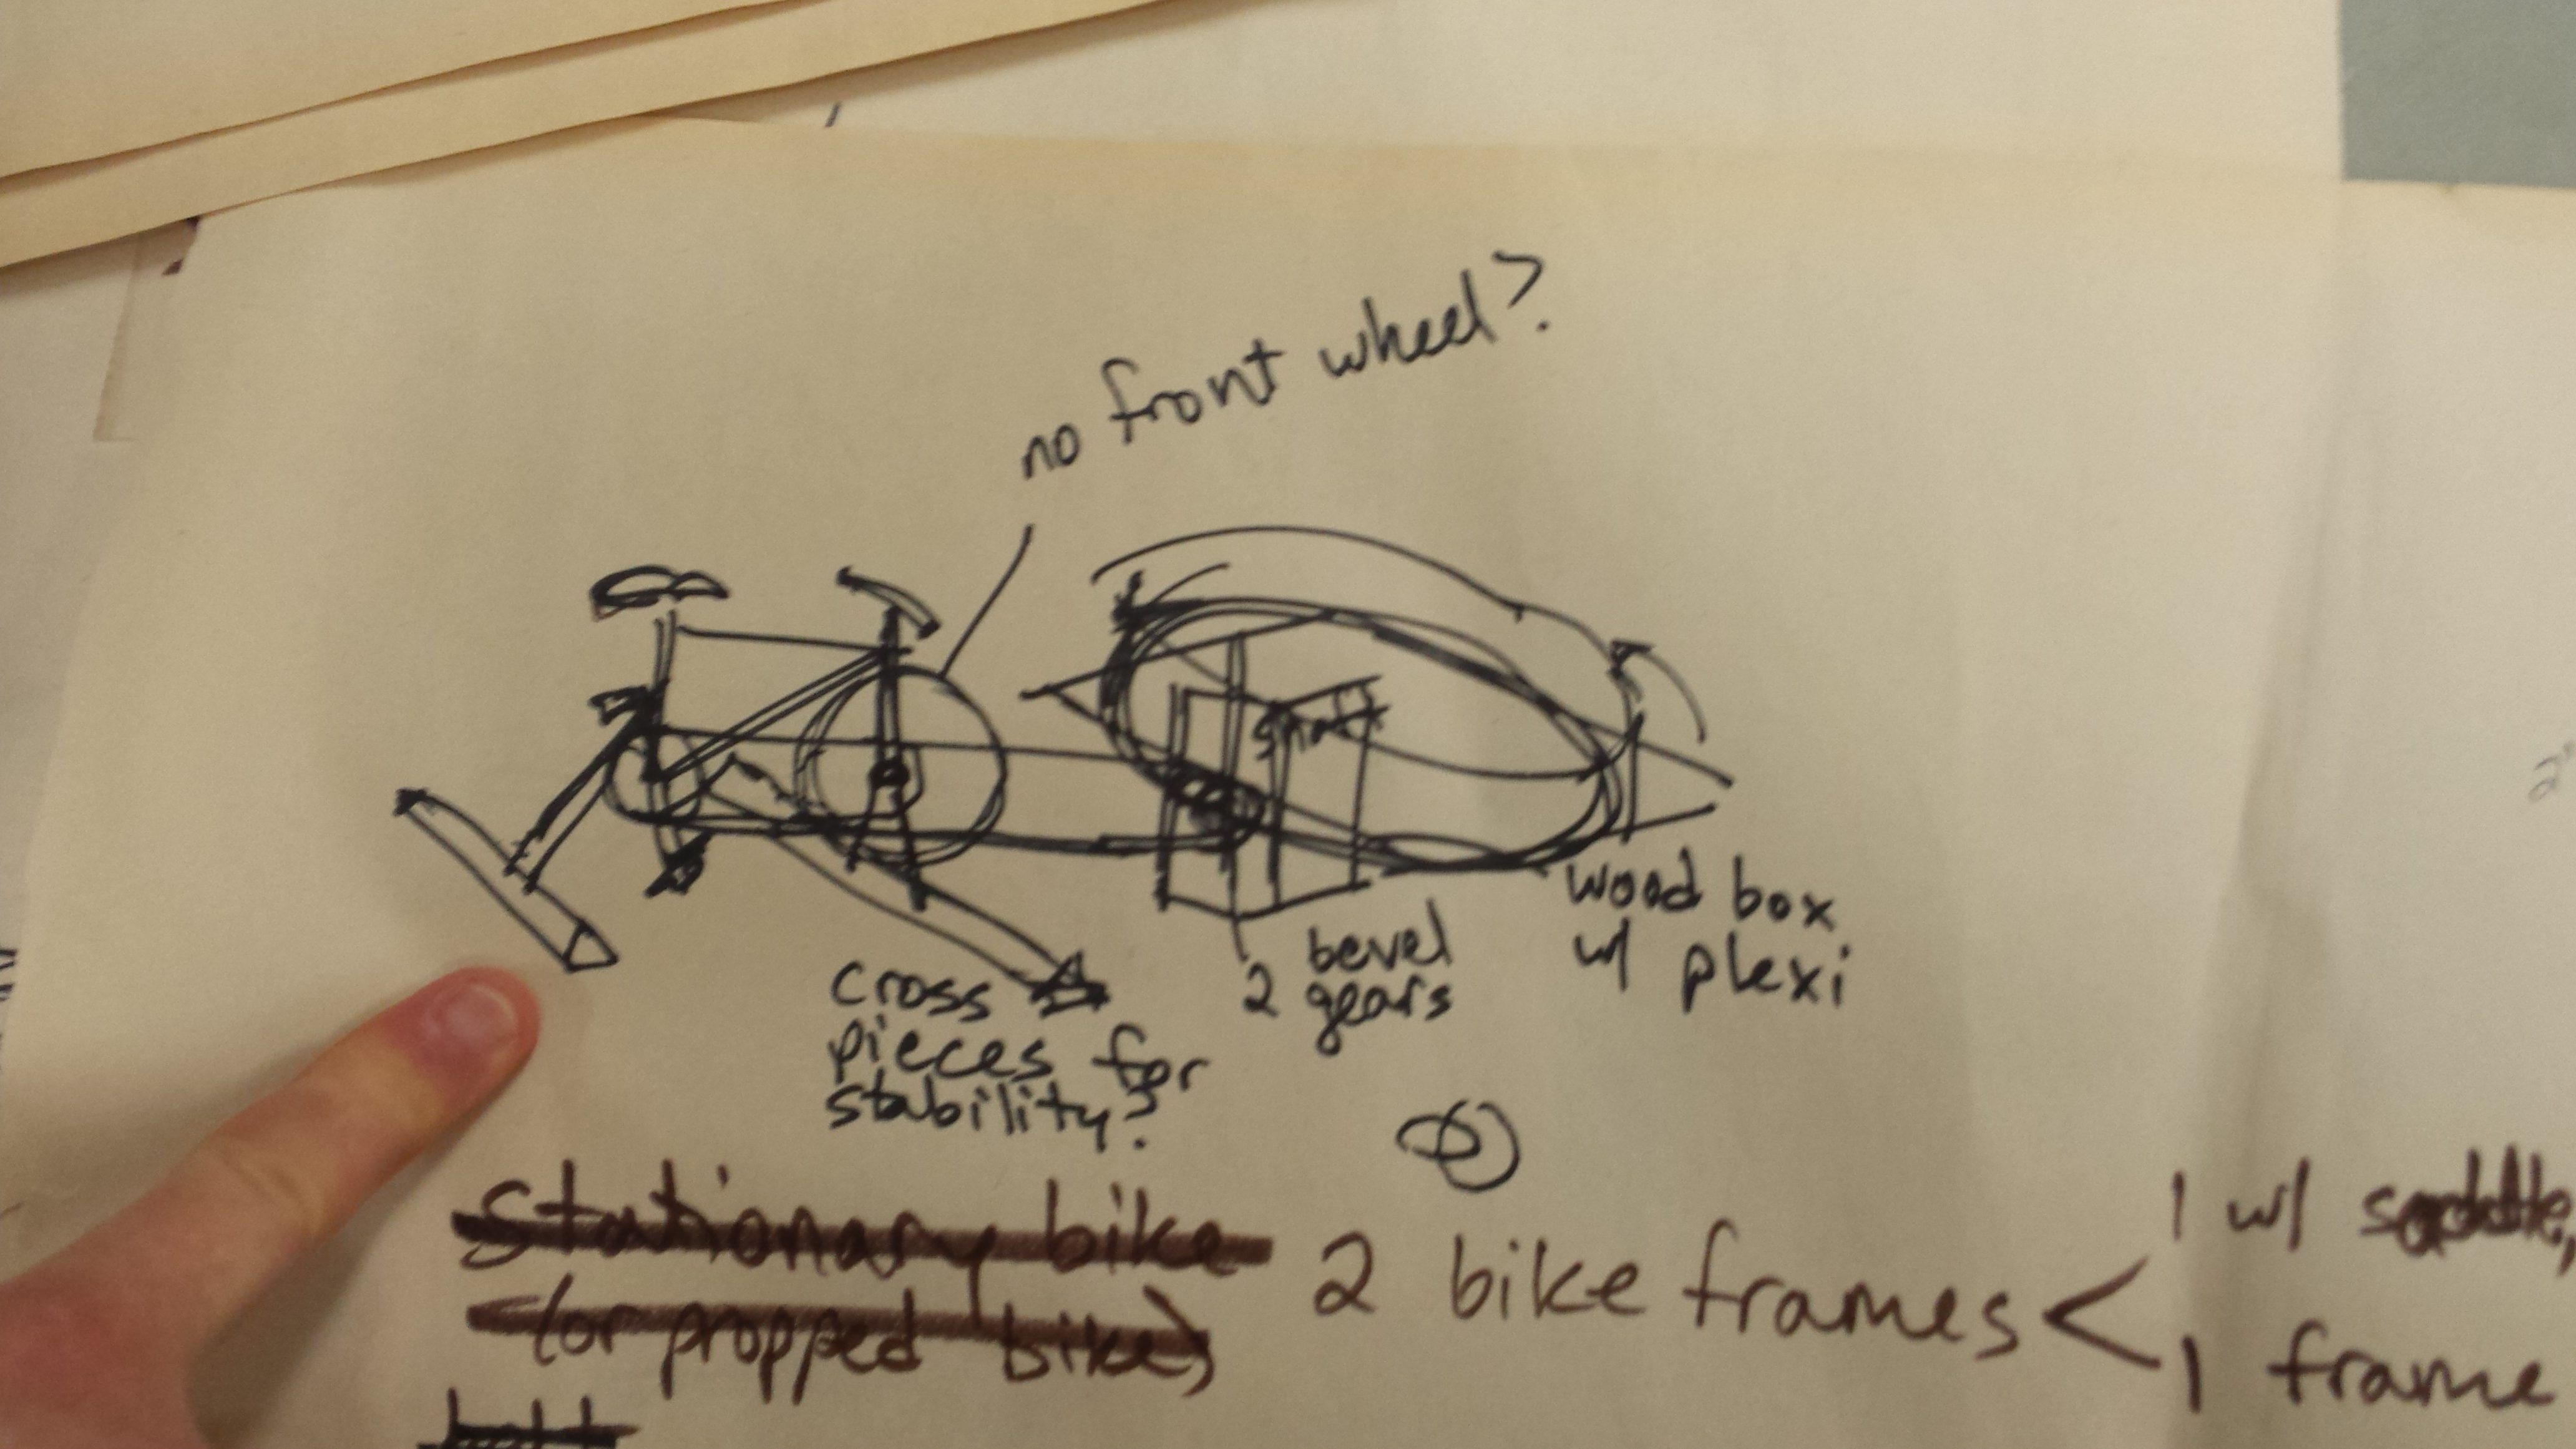 no front wheel?
shaft
wood box
w/ plexi
2 bevel
gears
cross
pieces for
stability?
stationary bike
(or propped bike)
2 bike frames <
1 w/ saddle,
1 frame
2"